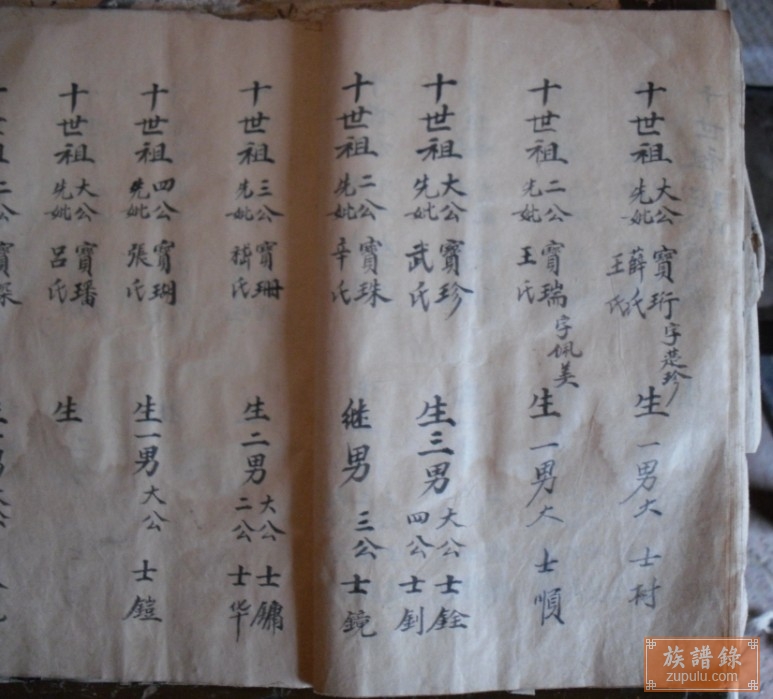 十世祖 大公 寶珩 字楚珍 先妣 薛氏 王氏 生一男 大 士村
十世祖 二公 寶瑞 字佩美 先妣 王氏 生一男 大 士順
十世祖 大公 寶珍 先妣 武氏 生三男 大公 士銓 四公 士釗
十世祖 二公 寶珠 先妣 辛氏 继男 三公 士鏡
十世祖 三公 寶珊 先妣 氏 生二男 大公 士鏞 二公 士华
十世祖 四公 寶瑚 先妣 張氏 生一男 大公 士鎧
十世祖 大公 寶璠 先妣 呂氏 生
二公 寶琛
族譜錄
zupulu.com